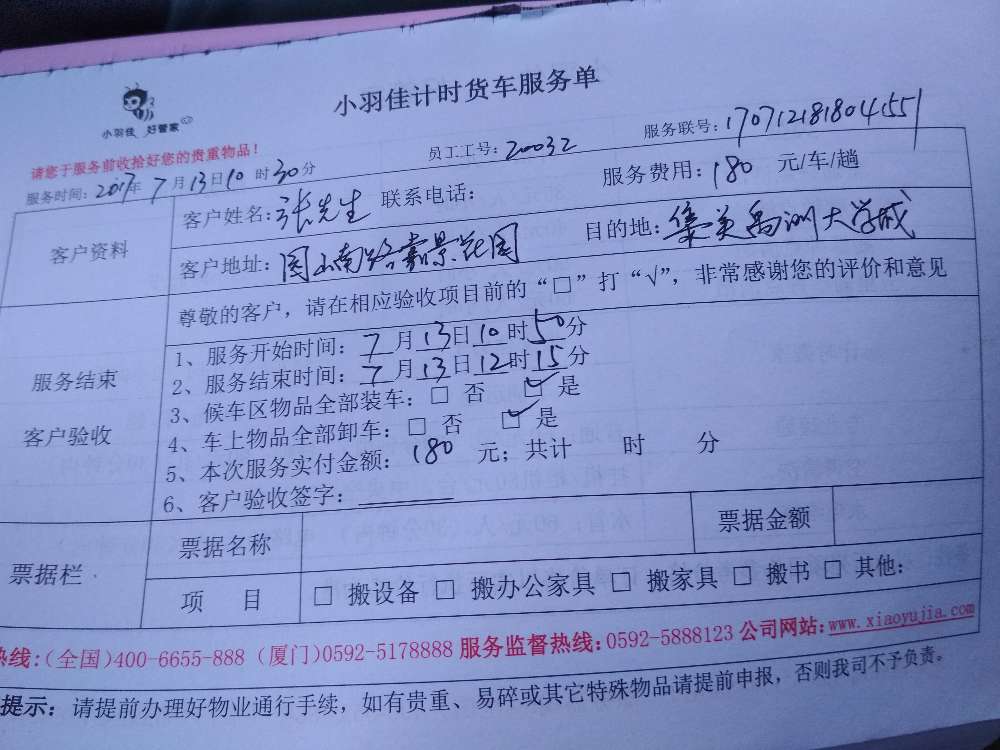 小羽佳计时货车服务单
小羽佳 好管家
请您于服务前收拾好您的贵重物品！
服务时间：2017年7月13日10时30分 员工工号：20032 服务联号：170712181804155
客户资料
客户姓名：张先生 联系电话： 服务费用：180 元/车/趟
客户地址：园山南路嘉景花园 目的地：集美禹洲大学城
尊敬的客户，请在相应验收项目前的“□”打“√”，非常感谢您的评价和意见
服务结束
客户验收
1、服务开始时间：7月13日10时50分
2、服务结束时间：7月13日12时15分
3、候车区物品全部装车：□ 否 ☑ 是
4、车上物品全部卸车：□ 否 ☑ 是
5、本次服务实付金额：180 元；共计 时 分
6、客户验收签字：
票据栏
票据名称 票据金额
项 目 □ 搬设备 □ 搬办公家具 □ 搬家具 □ 搬书 □ 其他：
热线：（全国）400-6655-888（厦门）0592-5178888 服务监督热线：0592-5888123 公司网站：www.xiaoyujia.com
提示：请提前办理好物业通行手续，如有贵重、易碎或其它特殊物品请提前申报，否则我司不予负责。